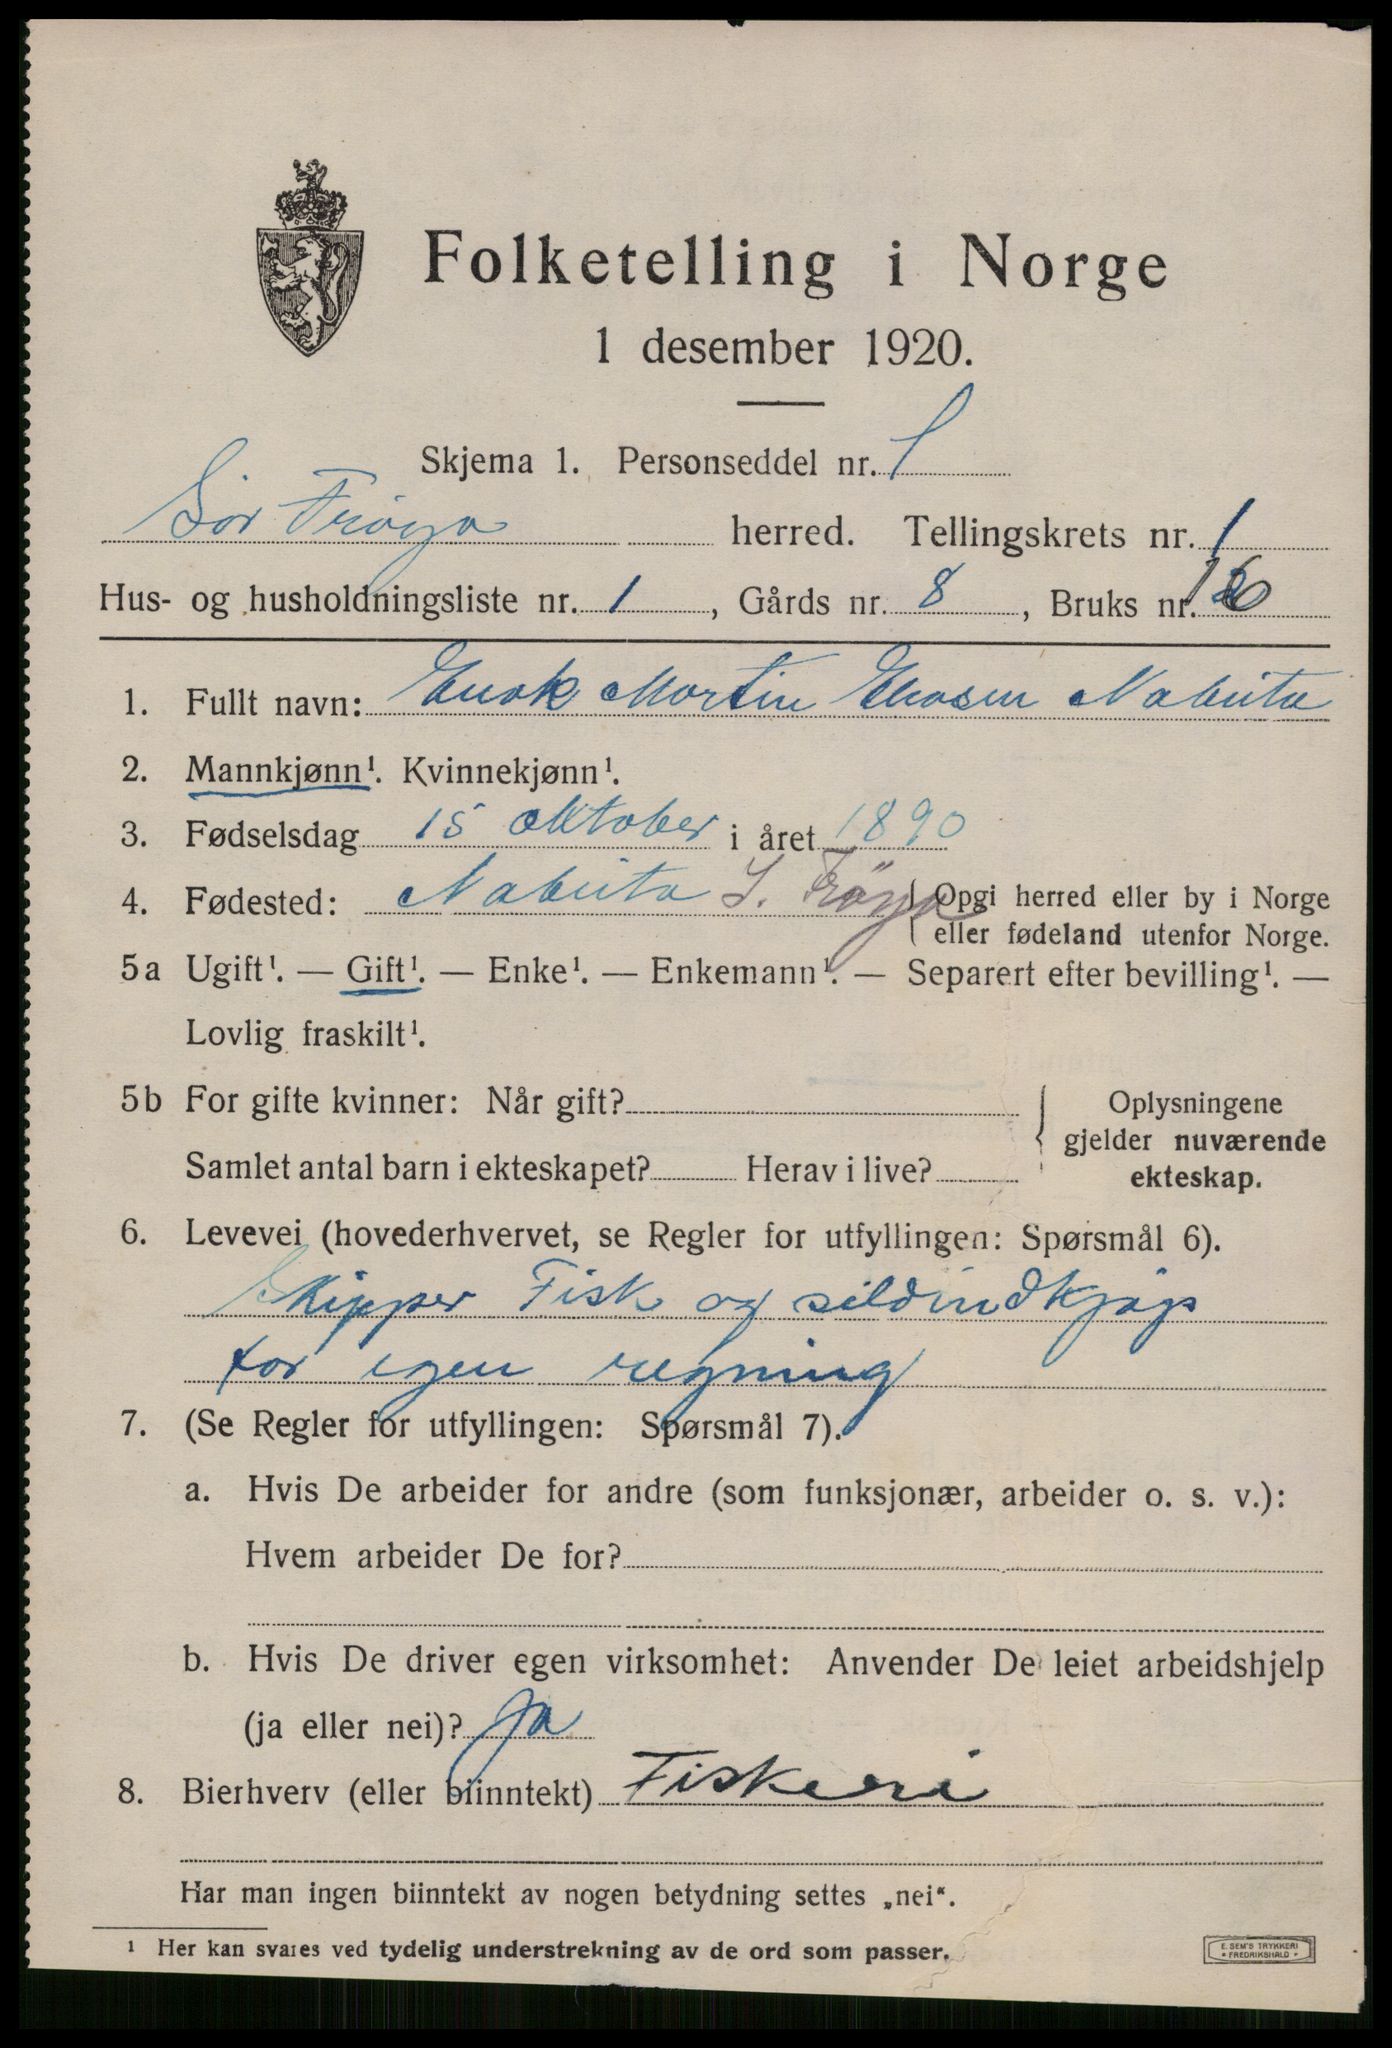 Folketelling i Norge
1 desember 1920.
Skjema 1. Personseddel nr. 1
Sör Fröya herred. Tellingskrets nr. 1
Hus- og husholdningsliste nr. 1, Gårds nr. 8, Bruks nr.
1. Fullt navn: Enok Martin Nabeita
2. Mannkjønn¹. Kvinnekjønn¹.
3. Fødselsdag 15 oktober i året 1890
4. Fødested: Nabeita S. Fröya { Opgi herred eller by i Norge
eller fødeland utenfor Norge.
5a Ugift¹. — Gift¹. — Enke¹. — Enkemann¹. — Separert efter bevilling¹. —
Lovlig fraskilt¹.
5b For gifte kvinner: Når gift?
Samlet antal barn i ekteskapet? Herav i live?
{ Oplysningene
gjelder nuværende
ekteskap.
6. Levevei (hovederhvervet, se Regler for utfyllingen: Spørsmål 6).
Skipper Fisk og sildindkjöp
for egen regning
7. (Se Regler for utfyllingen: Spørsmål 7).
a. Hvis De arbeider for andre (som funksjonær, arbeider o. s. v.):
Hvem arbeider De for?
b. Hvis De driver egen virksomhet: Anvender De leiet arbeidshjelp
(ja eller nei)? Ja
8. Bierhverv (eller biinntekt) Fiskeri
Har man ingen biinntekt av nogen betydning settes „nei“.
¹ Her kan svares ved tydelig understrekning av de ord som passer.
E. SEM'S TRYKKERI
* FREDRIKSHALD *